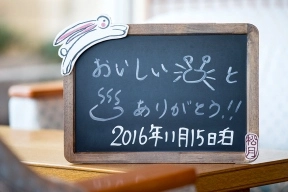 おいしい と
ありがとう!!
2016年11月15日
松月